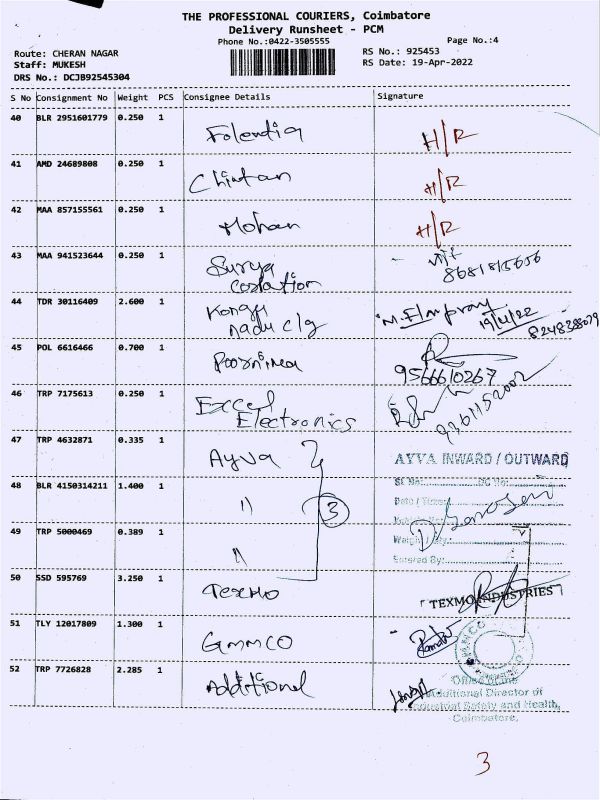 THE PROFESSIONAL COURIERS, Coimbatore
Delivery Runsheet - PCM
Phone No.:0422-3505555
Page No.:4
Route: CHERAN NAGAR
Staff: MUKESH
DRS No.: DCJB92545304
RS No.: 925453
RS Date: 19-Apr-2022
S No Consignment No Weight PCS Consignee Details Signature
40 BLR 2951601779 0.250 1 H/R
41 AMD 24689808 0.250 1 Chintan H/R
42 MAA 857155561 0.250 1 Mohan H/R
43 MAA 941523644 0.250 1 Surya
44 TDR 30116409 2.600 1 Kongu
nadu clg 19/4/22
45 POL 6616466 0.700 1 Poornima
9566610267
46 TRP 7175613 0.250 1 Excel
Electronics 9361152002
47 TRP 4632871 0.335 1 Ayva AYVA INWARD / OUTWARD
48 BLR 4150314211 1.400 1 " 3
Date / Time:
49 TRP 5000469 0.389 1 "
Entered By:
50 SSD 595769 3.250 1 Texmo TEXMO INDUSTRIES
51 TLY 12017809 1.300 1 GMMCO
52 TRP 7726828 2.285 1 Additional
Office of the
Additional Director of
Industrial Safety and Health,
Coimbatore.
3